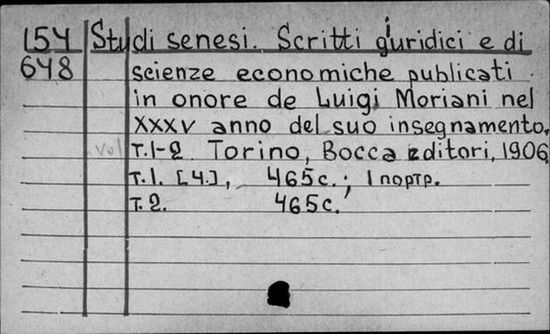 154 Studi senesi. Scritti giuridici e di
648 scienze economiche publicati
in onore de Luigi Moriani nel
XXXV anno del suo insegnamento.
vol т.1-2 Torino, Bocca editori, 1906
т.1. [4.], 465с.; 1 портр.
т.2. 465с.